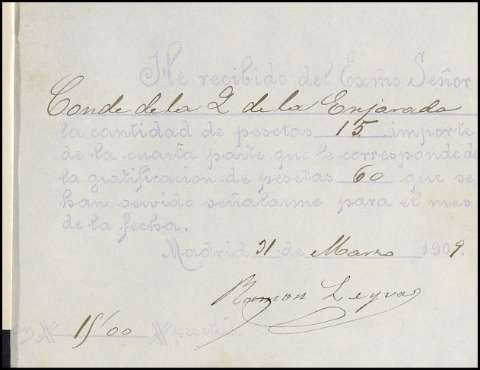 He recibido del Exmo Señor
Conde de la Q. de la Enjarada
la cantidad de pesetas 15 importe
de la cuarta parte que le corresponde de
la gratificacion de pesetas 60 que se
han servido señalarme para el mes
de la fecha.
Madrid 31 de Marzo 1909.
Ramon Leyva
15'00